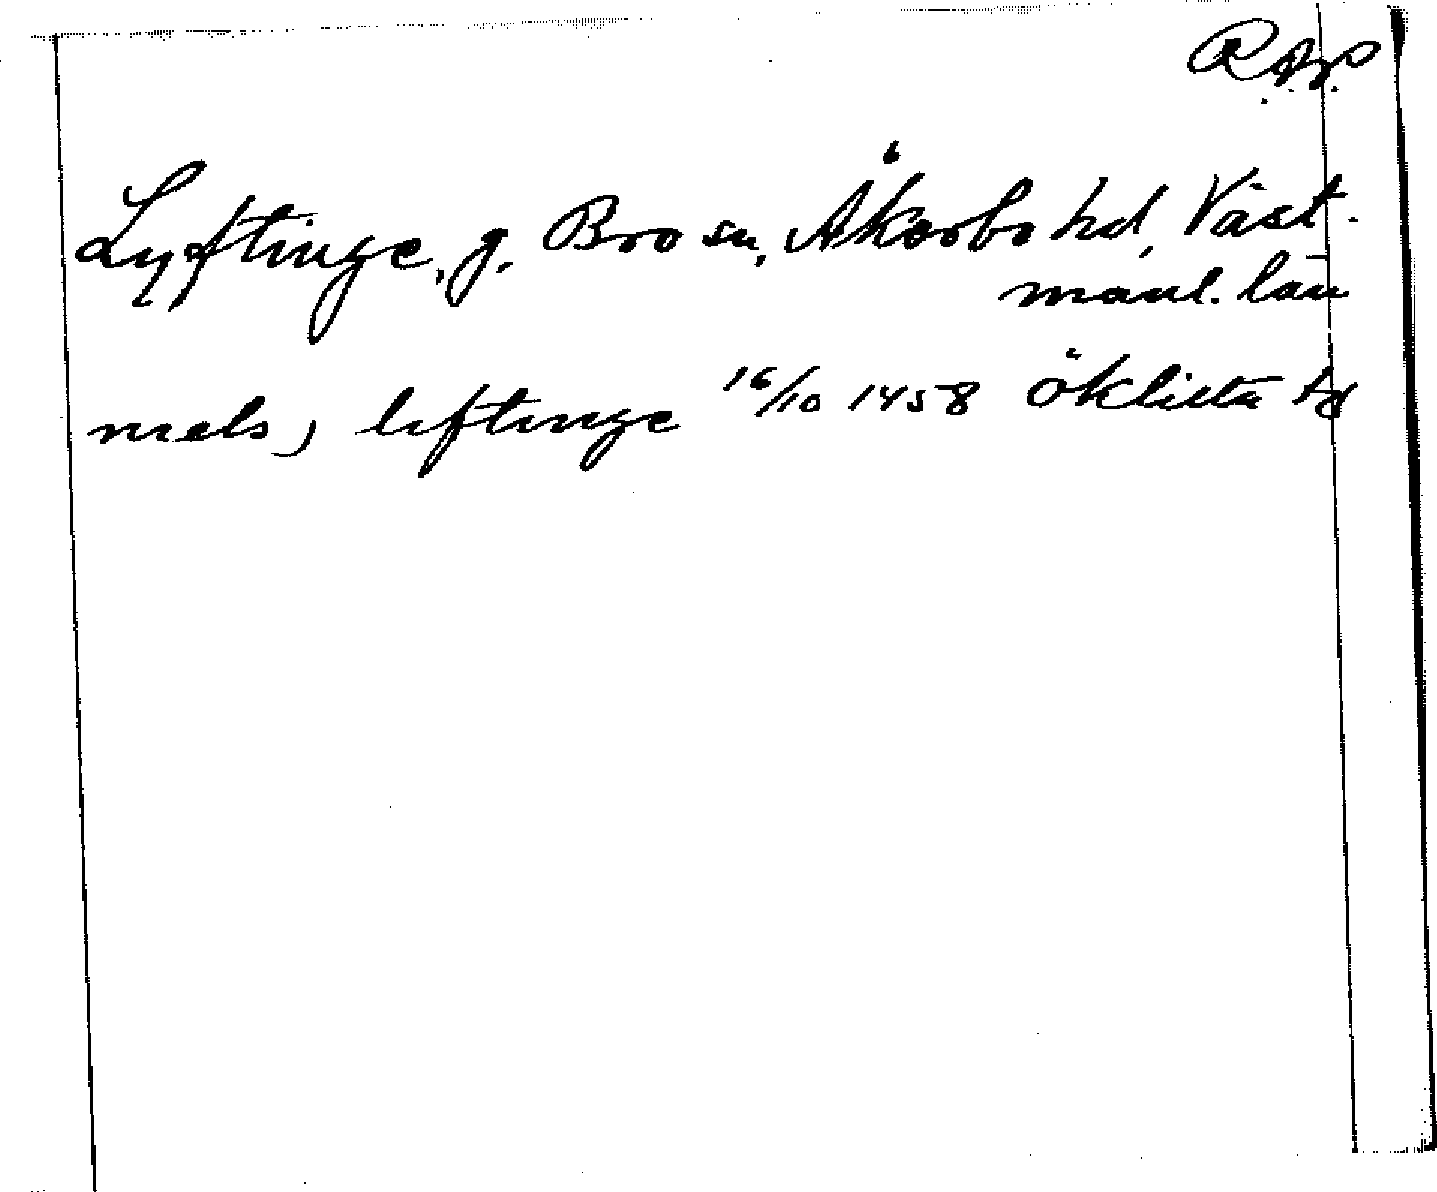 R.A.P.
Lyftinge, g. Bro sn, Åkerbo hd, Väst-
manl. län
niels) liftinge 16/10 1458